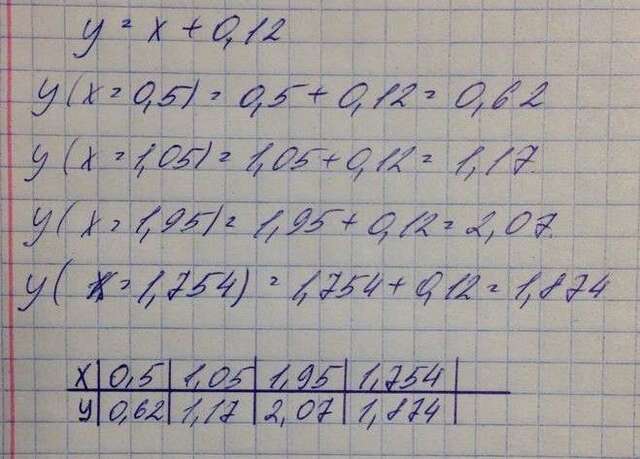 y = x + 0,12
y(x = 0,5) = 0,5 + 0,12 = 0,62
y(x = 1,05) = 1,05 + 0,12 = 1,17.
y(x = 1,95) = 1,95 + 0,12 = 2,07.
y(x = 1,754) = 1,754 + 0,12 = 1,874
x | 0,5 | 1,05 | 1,95 | 1,754 |
y | 0,62 | 1,17 | 2,07 | 1,874 |